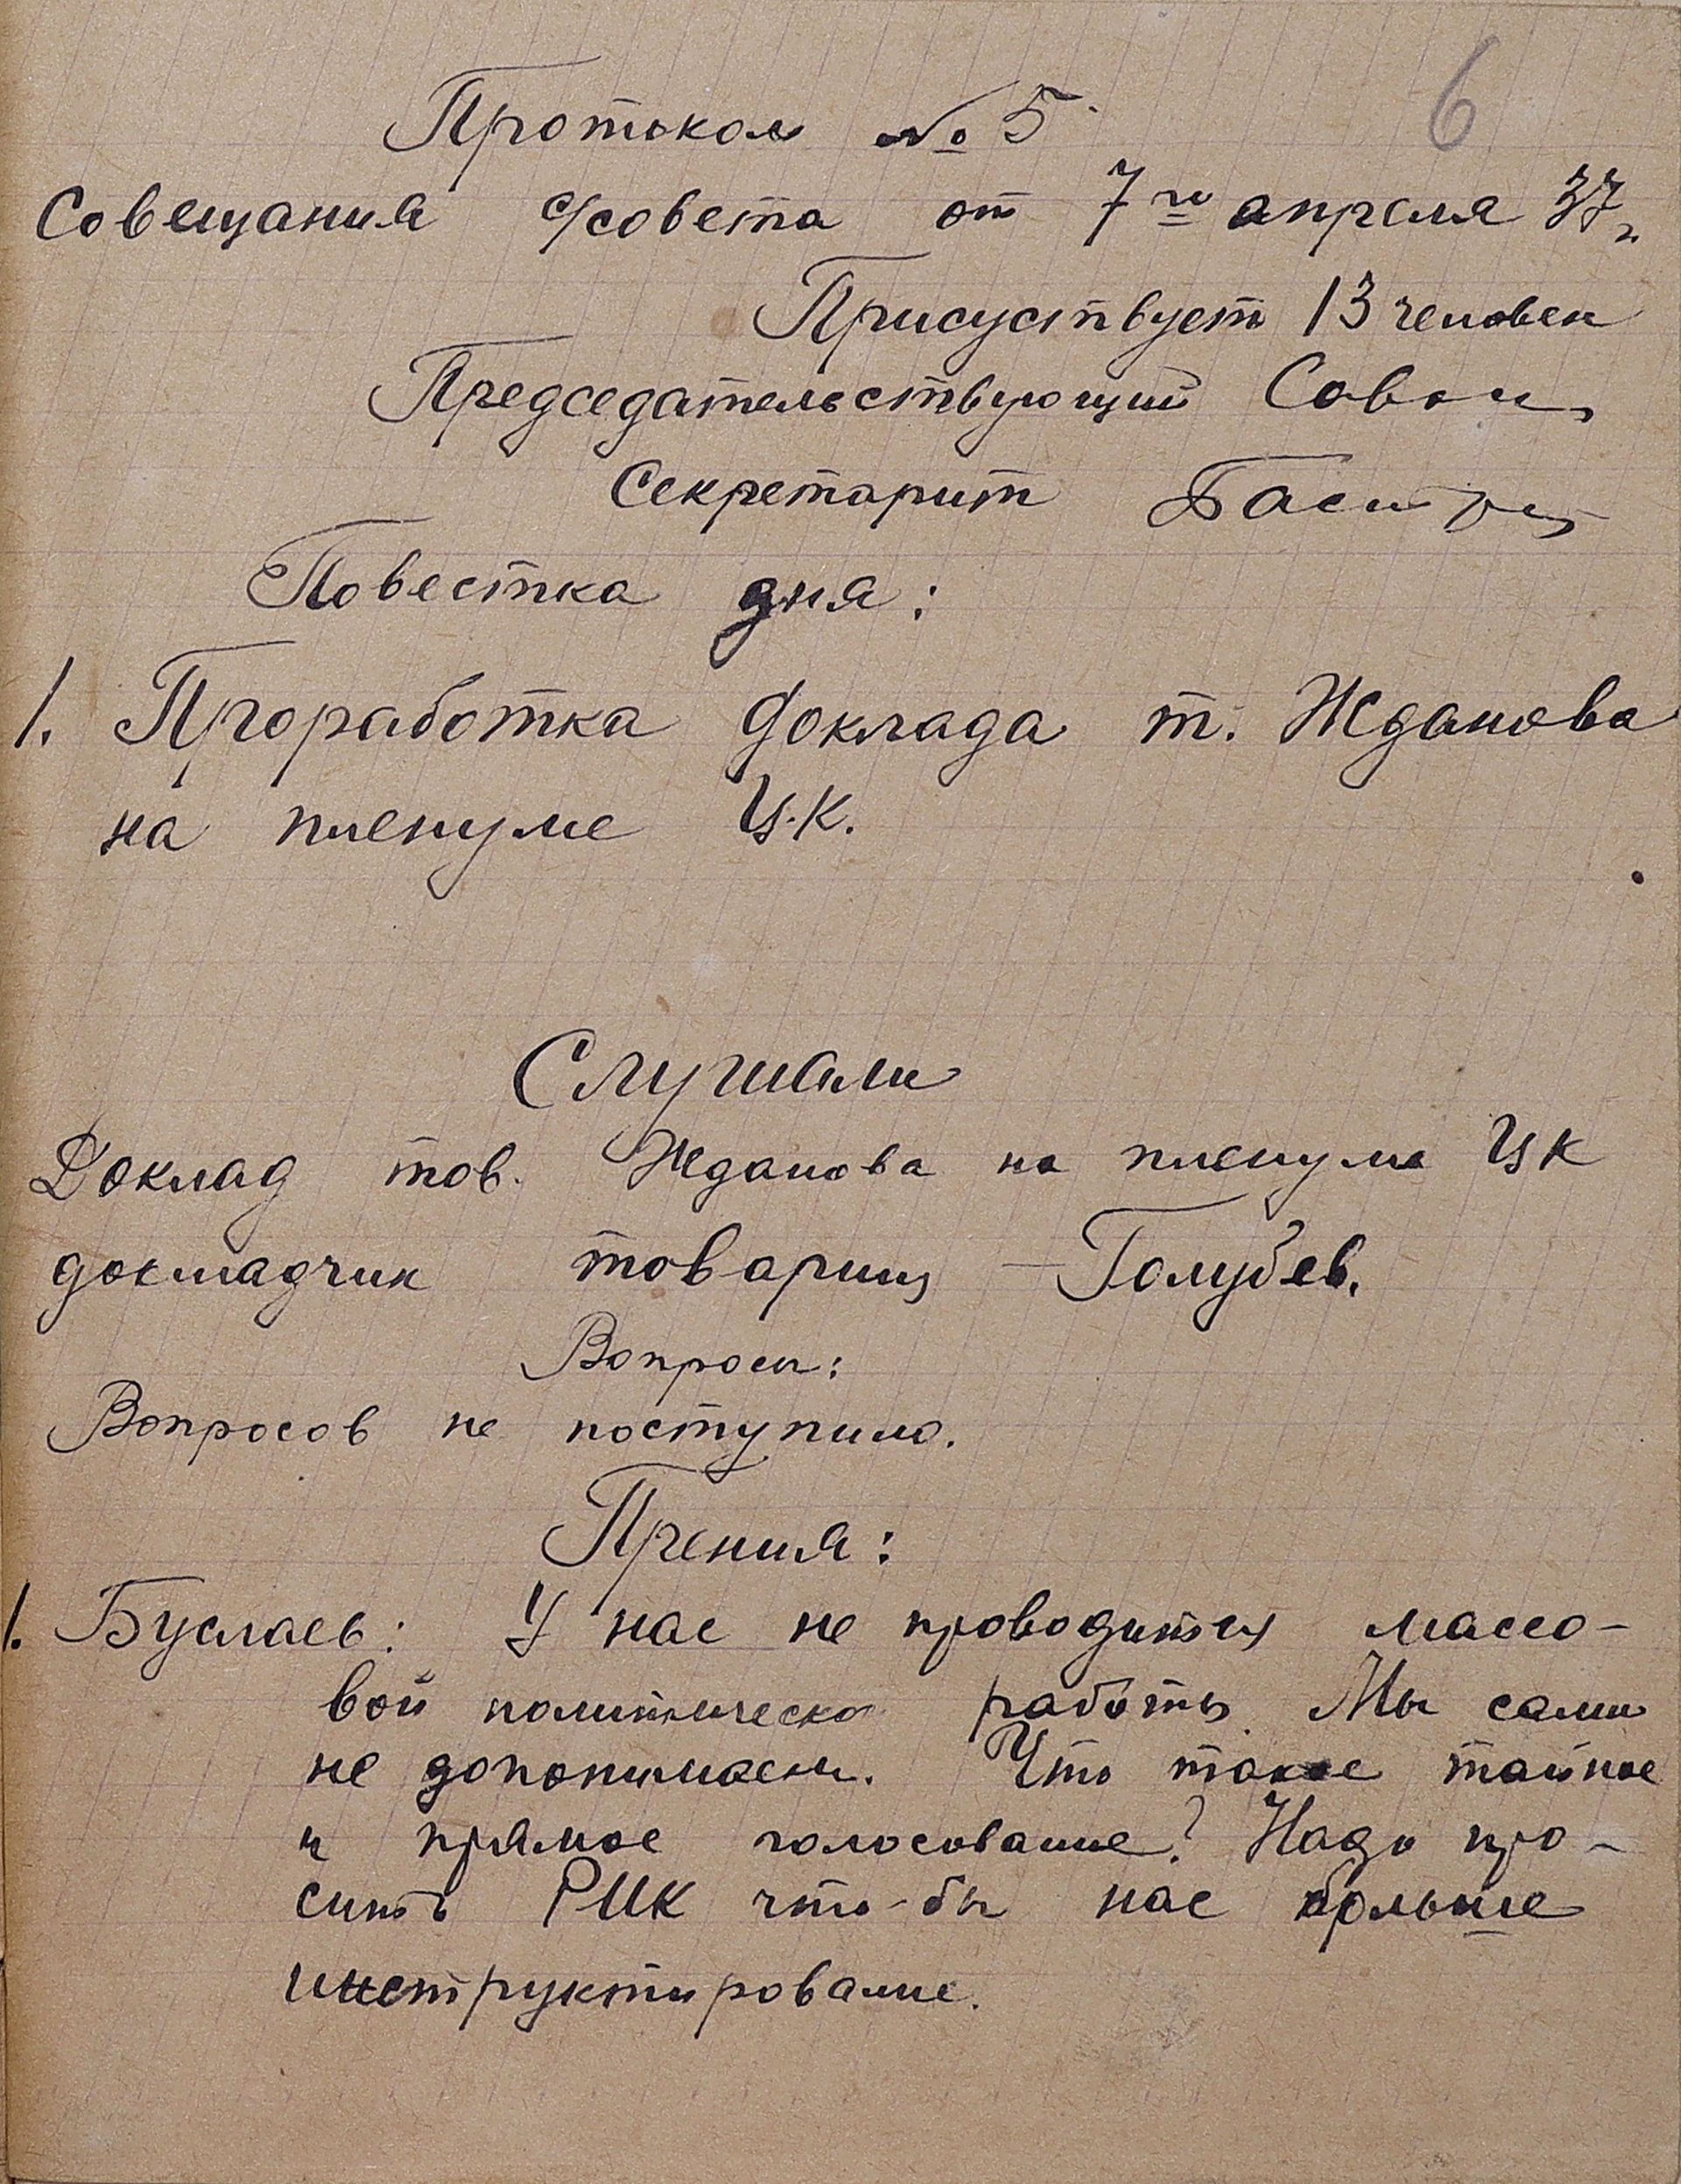 6
Протокол № 5
Совещания с/совета от 7го апреля 37г.
Присуствует 13 человек
Председательствующий
Секретарит
Повестка дня:
1. Проработка доклада т. Жданова
на пленуме Ц.К.
Слушали
Доклад тов. Жданова на пленуме ЦК
докладчик товарищ Голубев.
Вопросы:
Вопросов не поступило.
Прения:
1. Буслаев: У нас не проводится массо-
вой политическо работы. Мы сами
не допонимаем. Что такое тайное
и прямое голосование? Надо про-
сить РИК что-бы нас больше
инструктировали.